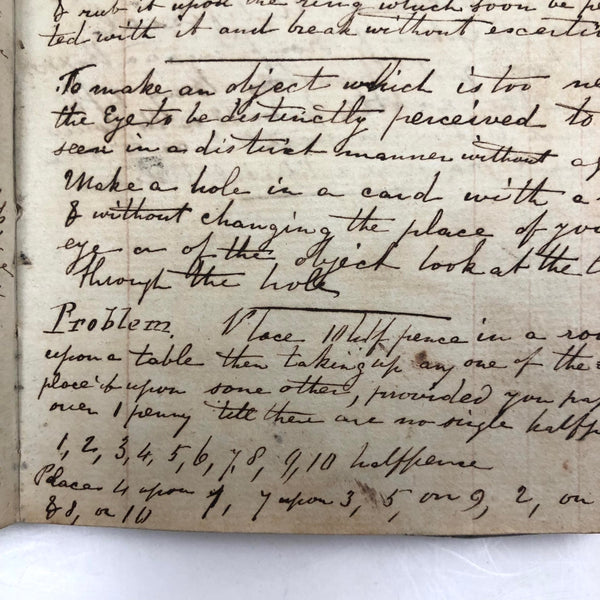 & rub it upon the ring which soon be
ted with it and break without
To make an object which is too
the Eye to be distinctly perceived to
seen in a distinct manner without
Make a hole in a card with a
& without changing the place of
eye or of the object look at the
through the hole
Problem. Place 10 half pence in a
upon a table then taking up any one of the
place it upon some other, provided you
over 1 penny till there are no single
1, 2, 3, 4, 5, 6, 7, 8, 9, 10 halfpence
Place 4 upon 1, 7 upon 3, 5, on 9, 2, on
& 8, on 10